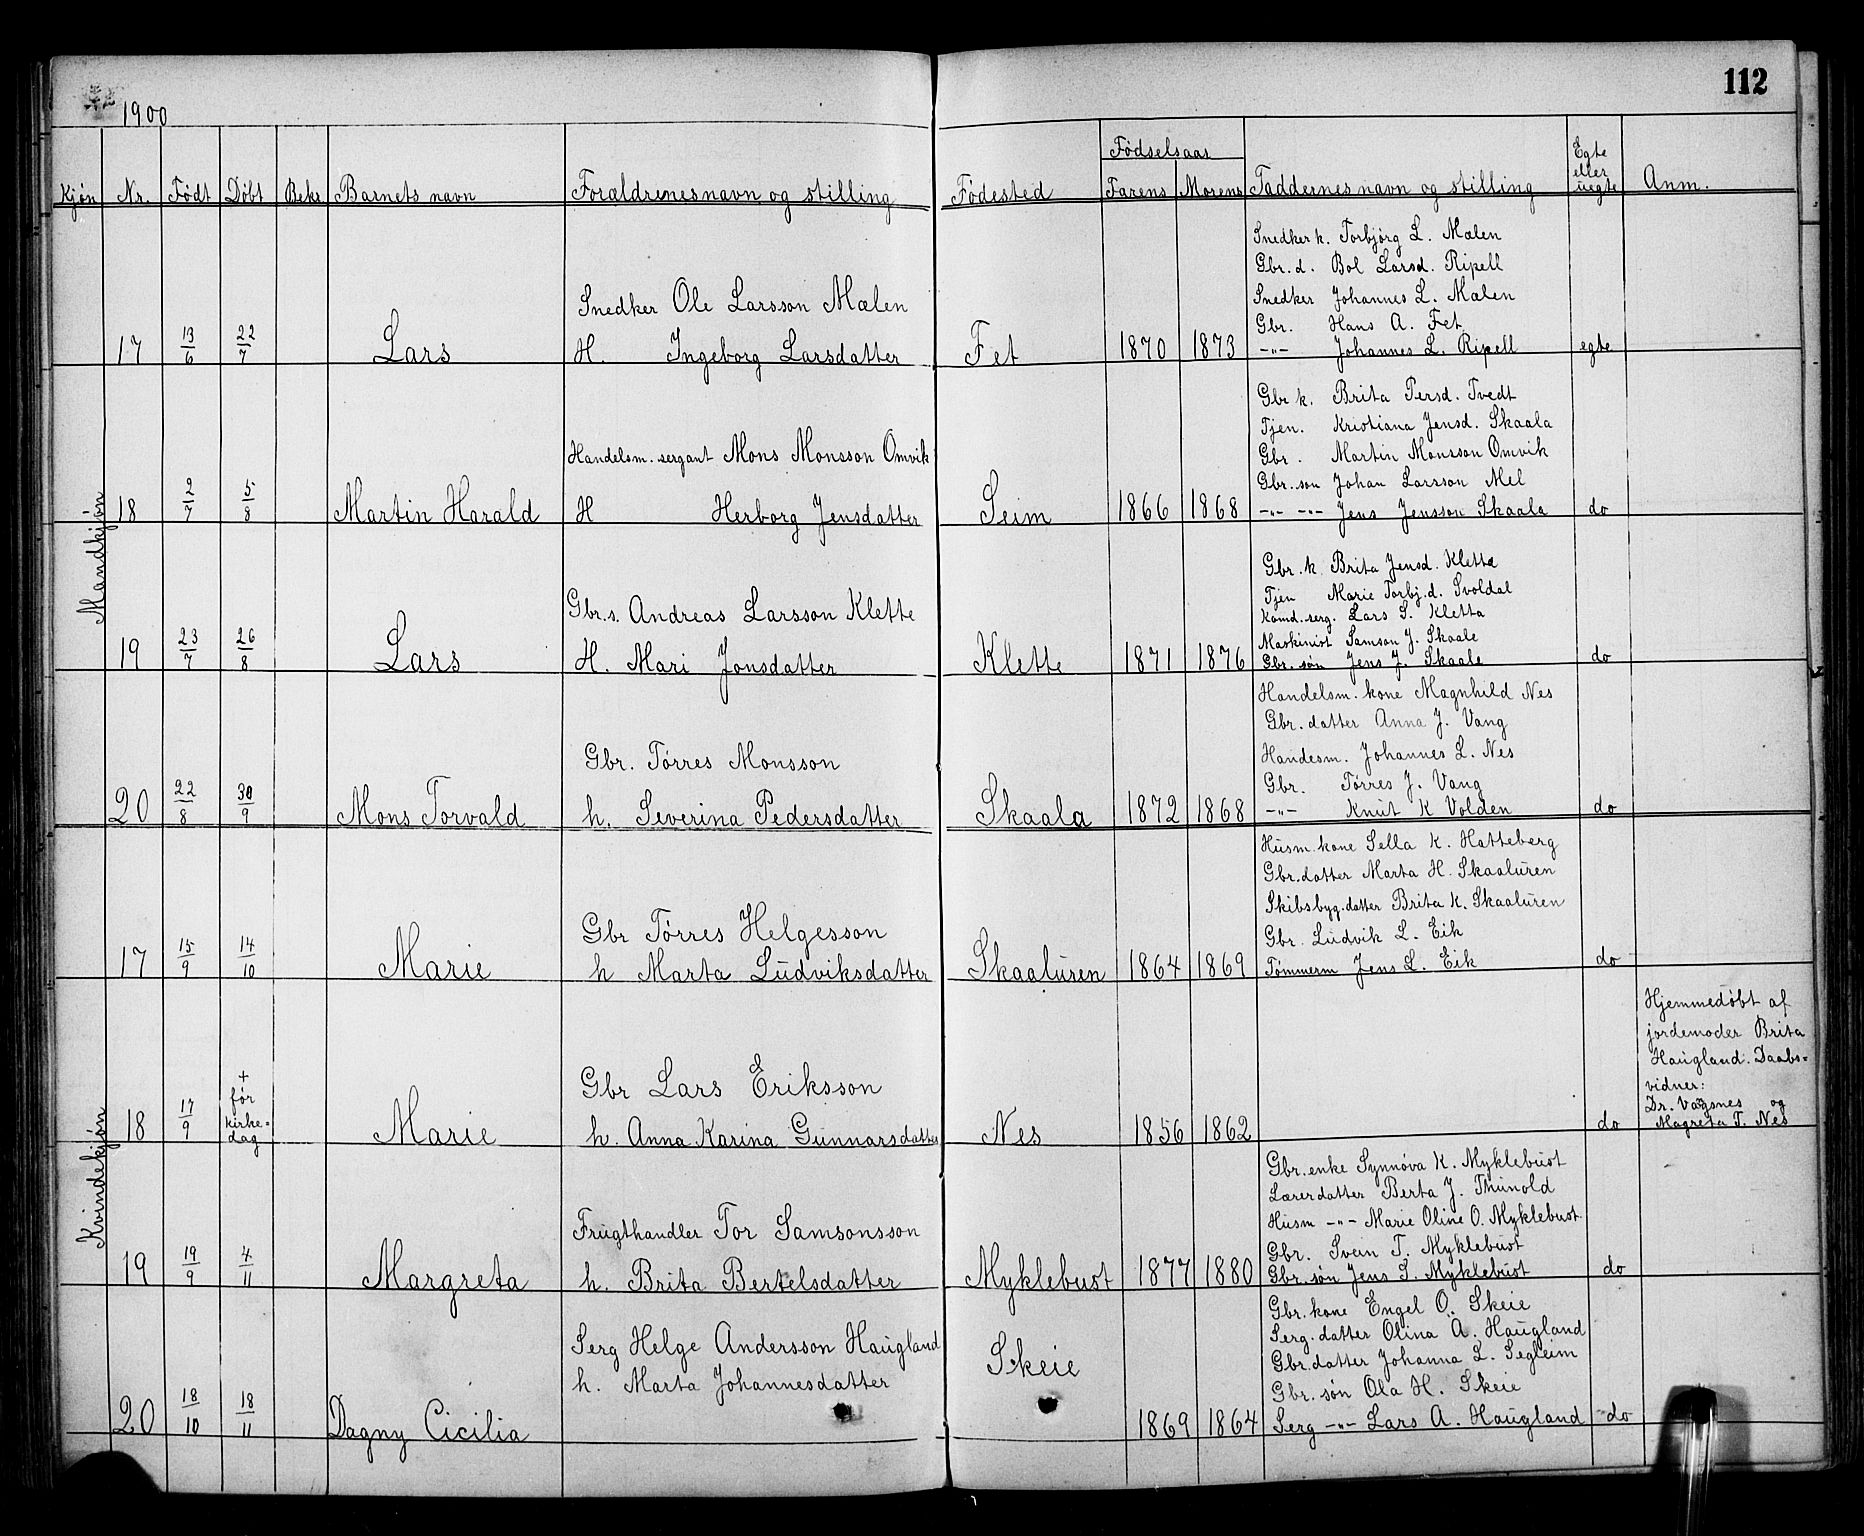 112
1900
Kjøn Nr. Født Døbt Bekr Barnets navn Forældrenes navn og stilling Fødested Fødselsaar Farens Morens Faddernes navn og stilling Egte eller uegte Anm.
Mandkjøn
17 13/6 22/7 Lars
Snedker Ole Larsson Mælen
H. Ingeborg Larsdatter
Fet 1870 1873
Snedker k. Torbjørg L. Mælen
Gbr. d. Bol Larsd. Ripell
Snedker Johannes L. Mælen
Gbr. Hans A. Fet
-"- Johannes L. Ripell
egte
18 2/7 5/8 Martin Harald
Handelsm. sergant Mons Monsson Omvik
H Herborg Jensdatter
Seim 1866 1868
Gbr k. Brita Persd. Tvedt
Tjen. Kristiana Jensd. Skaala
Gbr. Martin Monsson Omvik
Gbr. søn Johan Larsson Mel
-"- -"- Jens Jensson Skaala
do
19 23/7 26/8 Lars
Gbr. s. Andreas Larsson Klette
H. Mari Jonsdatter
Klette 1871 1876
Gbr. k. Brita Jensd. Kletta
Tjen Marie Torbj. d. Svoldal
Komd. serg. Lars S. Kletta
Maskinist Samson J. Skaale
Gbr. søn Jens J. Skaale
do
20 22/8 30/9 Mons Torvald
Gbr. Tørres Monsson
h. Severina Pedersdatter
Skaala 1872 1868
Handelsm. kone Magnhild Nes
Gbr. datter Anna J. Vang
Handesm. Johannes L. Nes
Gbr. Tørres J. Vang
-"- Knut K Volden
do
Kvindekjøn
17 15/9 14/10 Marie
Gbr Tørres Helgesson
h Marta Ludviksdatter
Skaaluren 1864 1869
Husm. kone Sella K. Hatteberg
Gbr. datter Marta H. Skaaluren
Skibsbyg. datter Brita K. Skaaluren
Gbr. Ludvik L. Eik
Tømmerm Jens L. Eik
do
18 17/9 + før kirke= dag Marie
Gbr Lars Eriksson
h. Anna Karina Gunnarsdatter
Nes 1856 1862
do
Hjemmedøbt af
jordemoder Brita
Haugland. Daabs=
vidner:
Dr. Vaagsnes og
Magreta T. Nes
19 19/9 4/11 Margreta
Frugthandler Tor Samsonsson
h. Brita Bertelsdatter
Myklebust 1877 1880
Gbr. enke Synnøva K. Myklebust
Lærerdatter Berta J. Thunold
Husm -"- Marie Oline O. Myklebust
Gbr. Svein T. Myklebust
Gbr. søn Jens S. Myklebust
do
20 18/10 18/11 Dagny Cicilia
Serg Helge Andersson Haugland
h. Marta Johannesdatter
Skeie 1869 1864
Gbr. kone Engel O. Skeie
Serg. datter Olina A. Haugland
Gbr. datter Johanna L. Segleim
Gbr. søn Ola H. Skeie
Serg -"- Lars A. Haugland
do